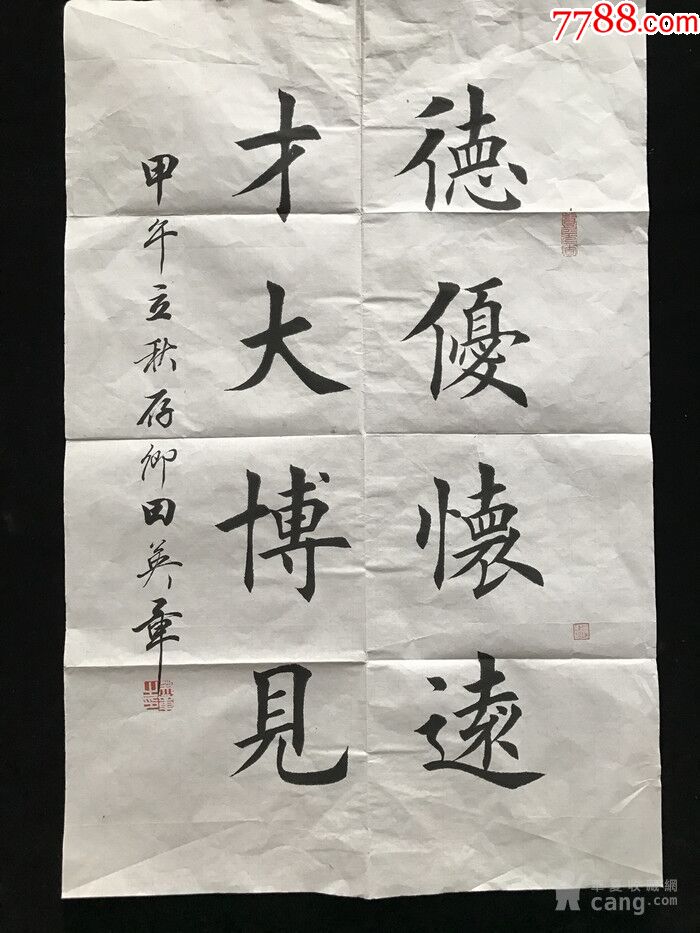 德優懷遠
才大博見
甲午立秋存卿田英章
7788.com
華夏收藏網
cang.com